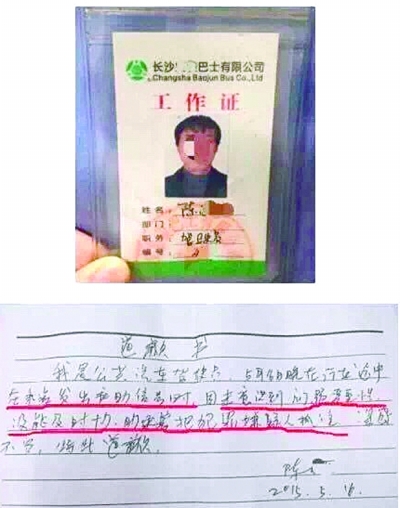 长沙 巴士有限公司
Changsha Baojun Bus Co.,Ltd
工作证
姓名: 陈
部门:
职务:
编号:
道歉书
我是公共汽车驾驶员 5月 晚在行车途中
在乘客发出 助信号时,因未意识到问题严重性
没能及时 助乘客把犯罪嫌疑人抓住 深感
不安,特此道歉。
陈
2015.5.16.